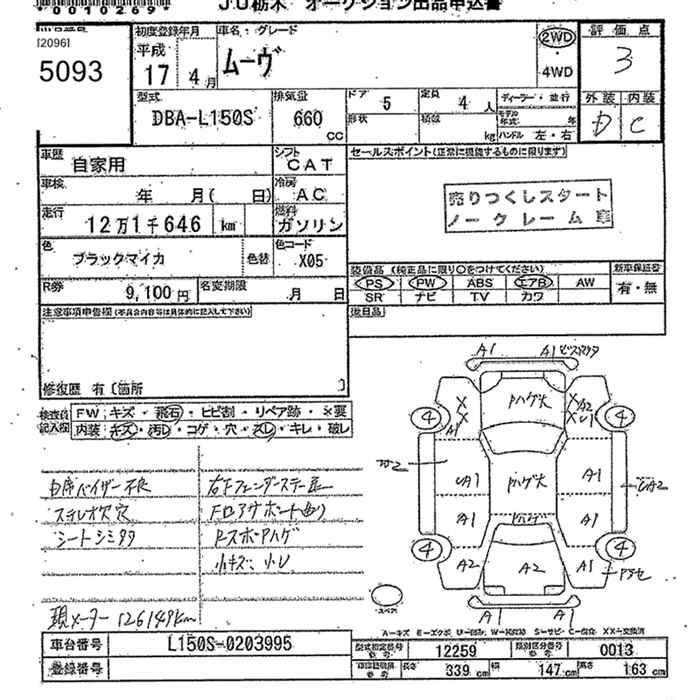 00102609
JU栃木 オークション出品申込書
[2096]
5093
初度登録年月
平成
17 4月
車名・グレード
ムーヴ
2WD
4WD
評価点
3
外装 内装
D C
型式
DBA-L150S
排気量
660 CC
ドア
5
定員
4人
形状
積数
kg
ディーラー・並行
モデル年式 年
ハンドル 左・右
車歴
自家用
シフト
CAT
セールスポイント(正常に機能するものに限ります)
売りつくしスタート
ノークレーム車
車検
年 月( 日)
冷房
AC
走行
12万1千646 km
燃料
ガソリン
色
ブラックマイカ
色替
色コード
X05
装備品(純正品に限り○をつけてください)
PS PW ABS エアB AW
SR ナビ TV カワ
新車保証書
有・無
R券
9,100円
名変期限
月 日
注意事項申告欄(不具合内容等は具体的に記入して下さい)
後日品
修復歴 有〔箇所 〕
検査員記入欄
FW キズ・飛石・ヒビ割・リペア跡・×要
内装 キズ・汚レ・コゲ・穴・スレ・キレ・破レ
内席バイザー不良
ステレオ穴穴
シートシミタタ
右Fフェンダーステー
小キズ、小レ
現メーター 126149km
A1
A1
4
4
4
4
Pハゲ大
Pハゲ大
Pハゲ
A1
A2
UA1
A1
A1
A1
UA2
A2
A2
A1
A1
A1
スペア
A-キズ E-エクボ U-凹み W-補修跡 S-サビ C-腐食 XX-交換済
車台番号
L150S-0203995
登録番号
型式指定番号 参考
12259
類別区分番号 参考
0013
長さ
339 cm
幅
147 cm
高さ
163 cm